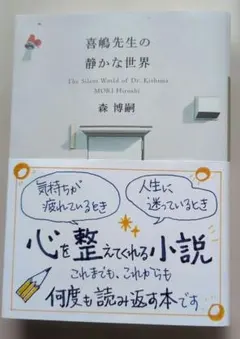 喜嶋先生の
静かな世界
The Silent World of Dr. Kishima
MORI Hiroshi
森 博嗣
気持ちが
疲れているとき
人生に
迷っているとき
心を整えてくれる小説
これまでも、これからも
何度も読み返す本です